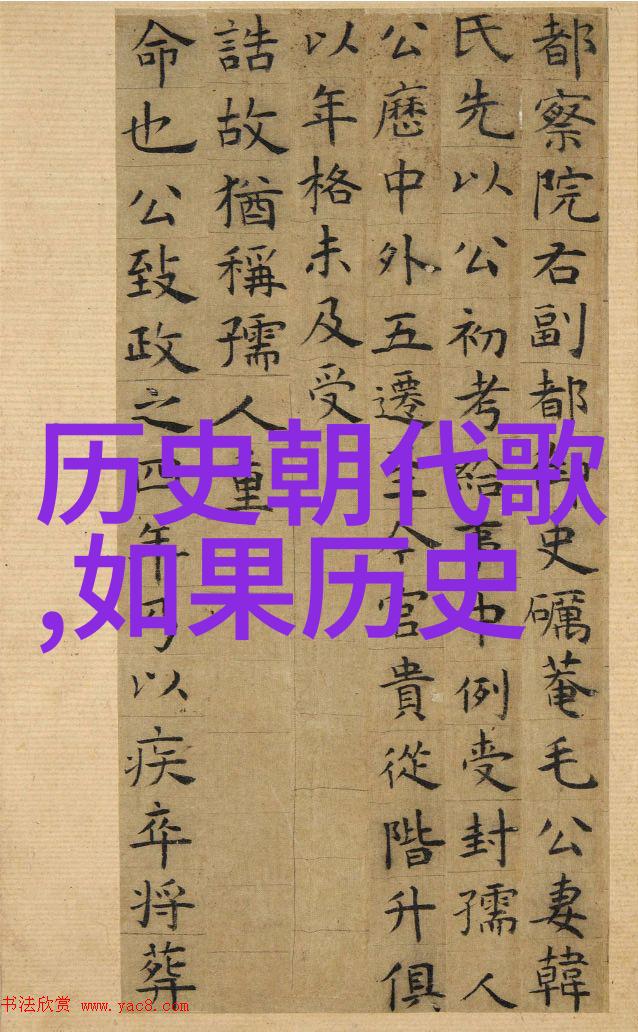 都察院右副都御史礪菴毛公妻韓
氏先以公初考給事中例受封孺人
公歷中外五遷至今官貴從階升俱
以年格未及受
誥故猶稱孺人重
命也公致政之四年乃以疾卒将葬
历史朝代歌
,如果历史
书法欣赏 www.yac8.com